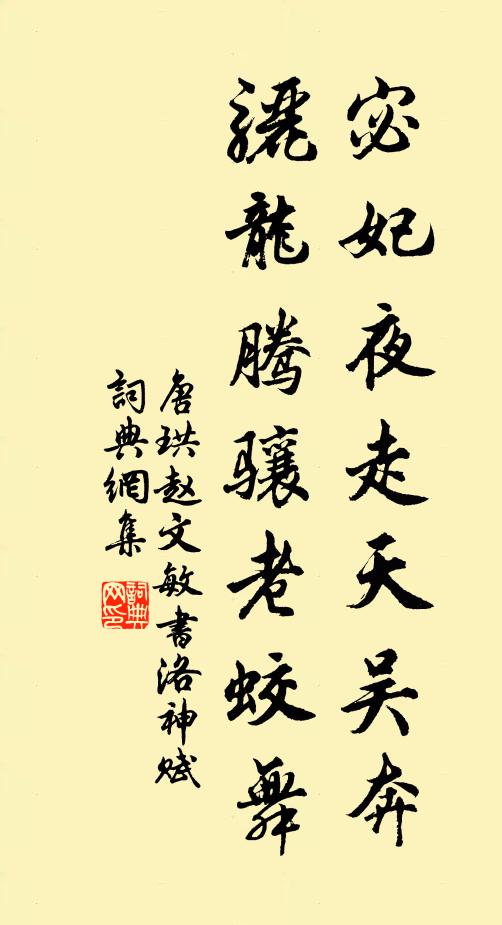 宓妃夜走天吴奔
骊龍腾骧老蛟舞
唐珙赵文敏書洛神赋
詞典網集
詞典网印